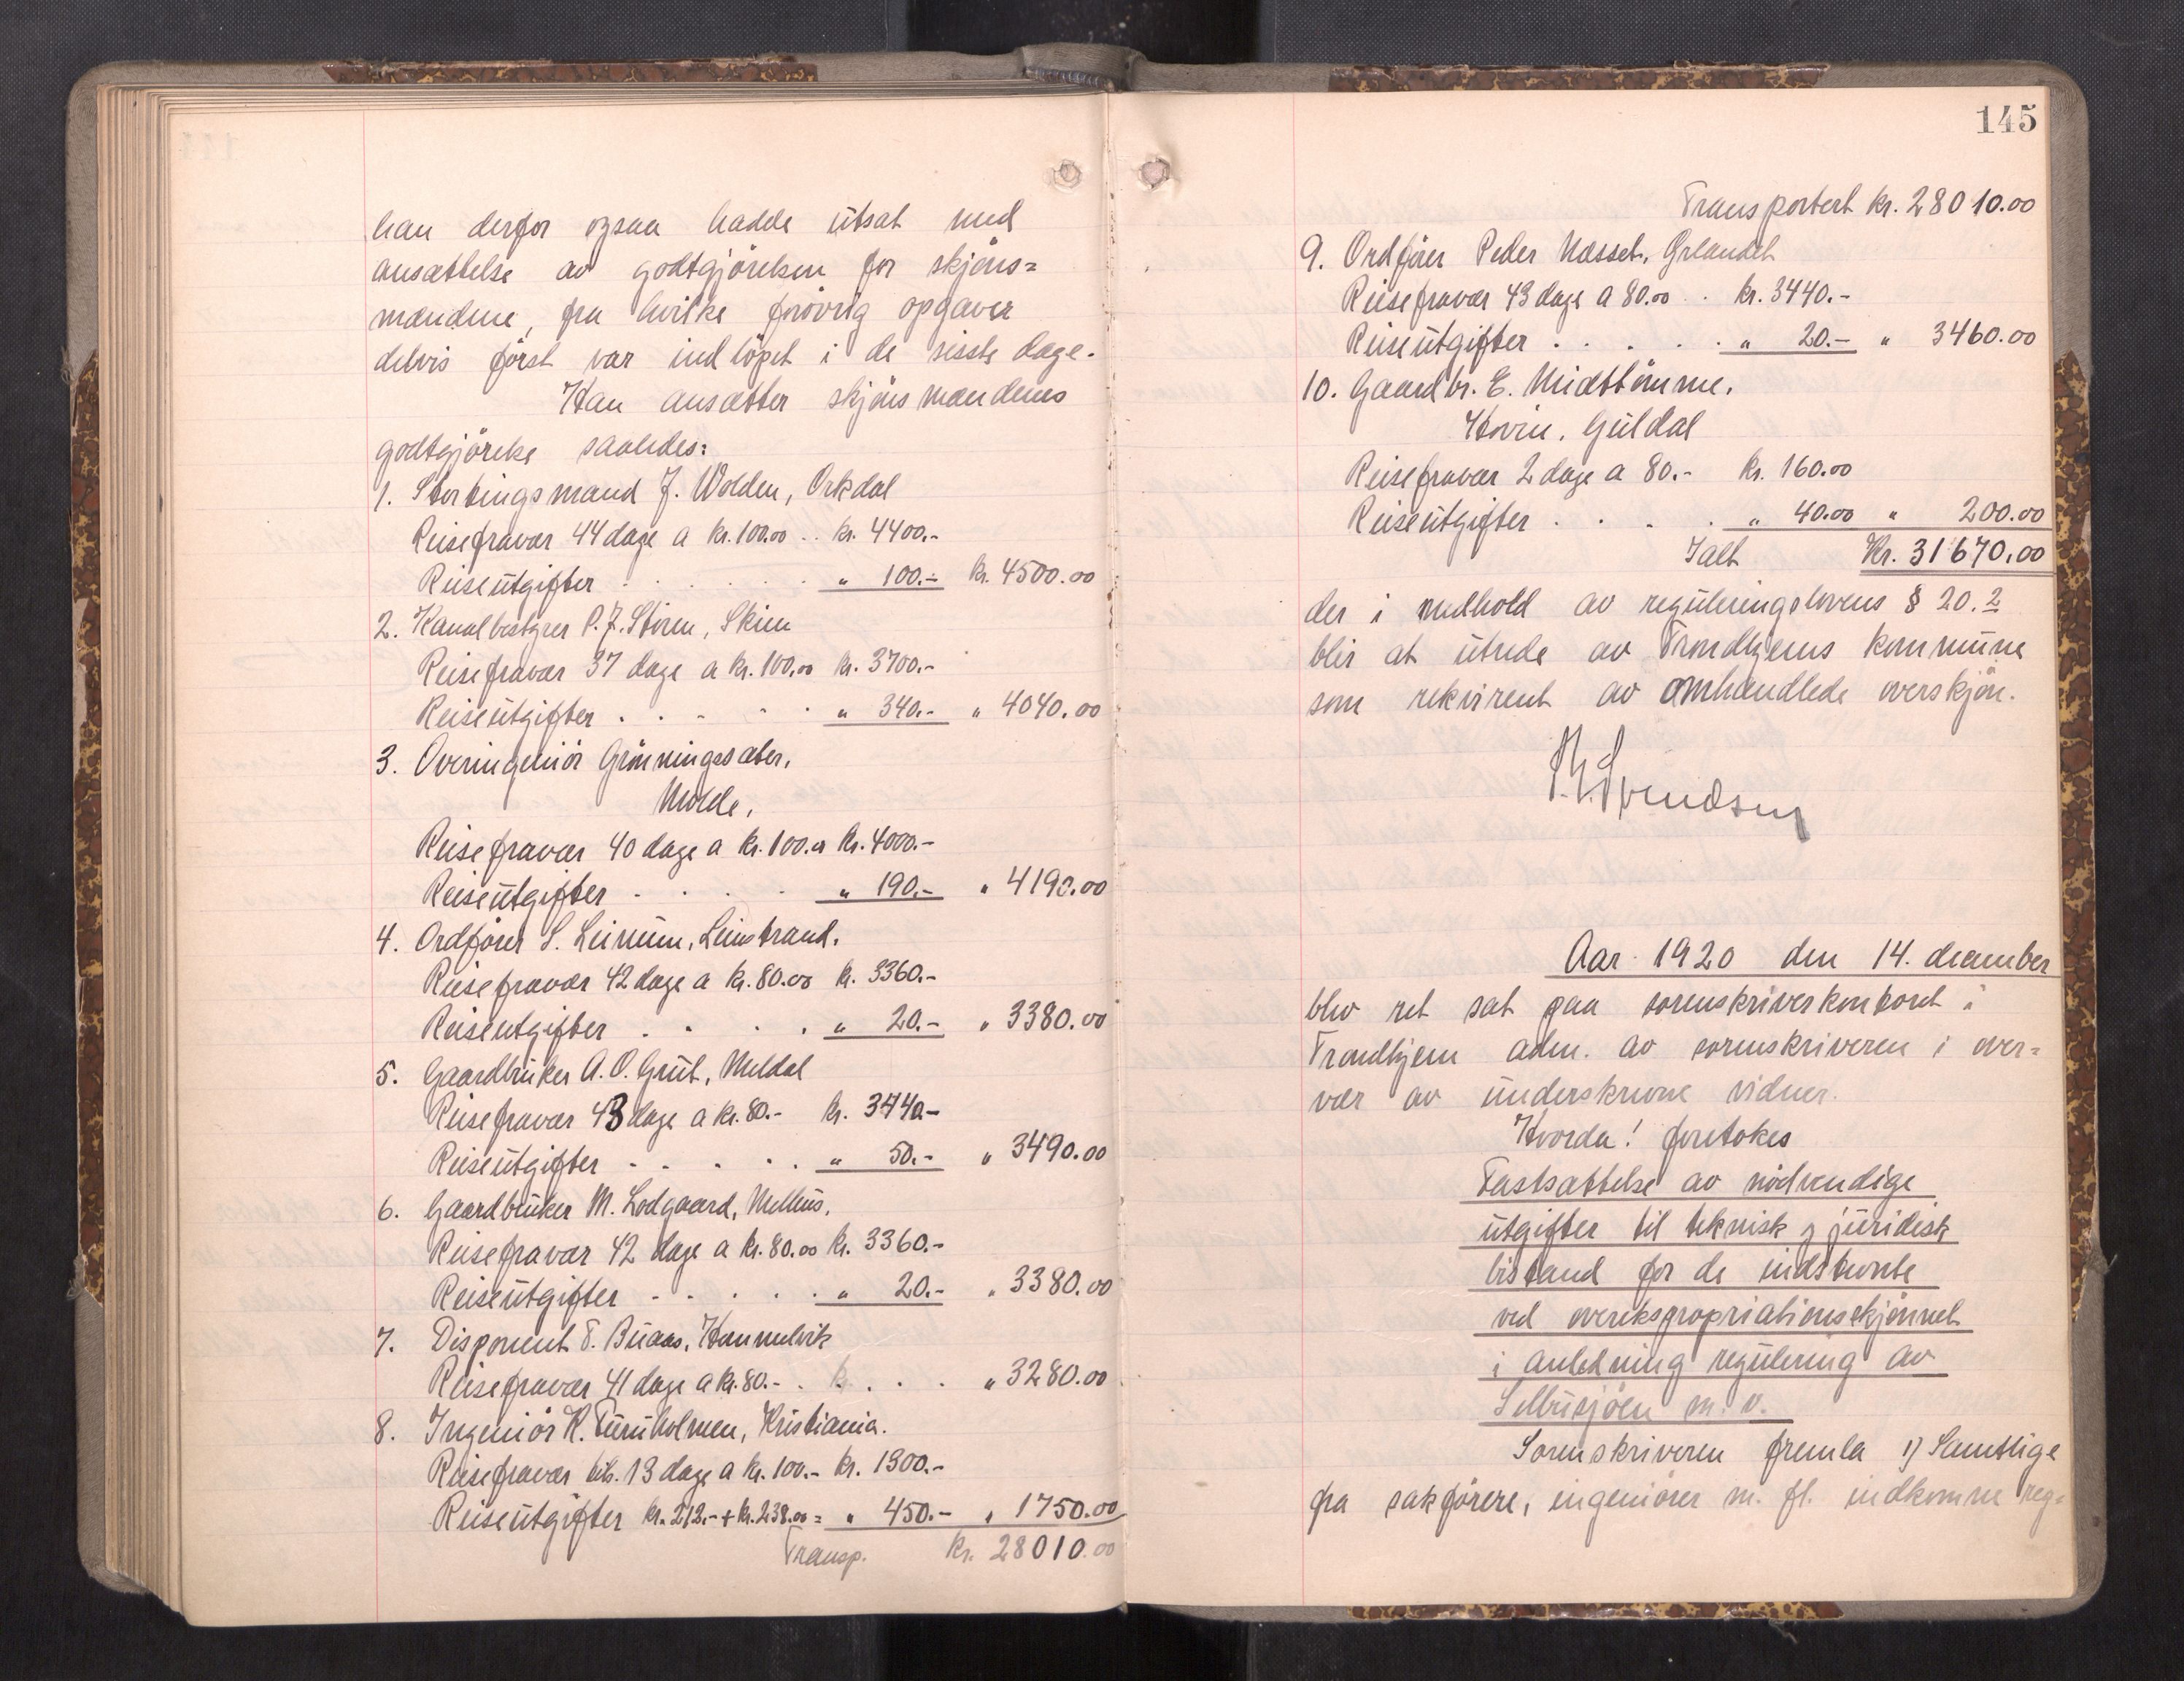 han derfor ogsaa hadde utsat med
ansættelse av godtgjörelsen for skjöns=
mændene, fra hvilke forövrig opgaver
delvis först var indlöpet i de sisste dage.
Han ansætter skjönsmændenes
godtgjörelse saaledes:
1. Stortingsmand J. Wolden, Orkdal
Reisefravær 44 dage a kr. 100.00 .. kr. 4400.-
Reiseutgifter . . . . . . „ 100.- kr. 4500.00
2. Kanalbestyrer P. J. Stören, Skien
Reisefravær 37 dage a kr. 100.00 kr. 3700.-
Reiseutgifter . . . . . „ 340.- „ 4040.00
3. Overingeniör Grönningsæter,
Molde,
Reisefravær 40 dage a kr. 100.00 kr. 4000.-
Reiseutgifter . . . . „ 190.- „ 4190.00
4. Ordförer S. Leinum, Leinstrand.
Reisefravær 42 dage a kr. 80.00 kr. 3360.-
Reiseutgifter . . . . „ 20.- „ 3380.00
5. Gaardbruker A. O. Grut, Meldal
Reisefravær 43 dage a kr. 80.- kr. 3440.-
Reiseutgifter . . . . . „ 50.- „ 3490.00
6. Gaardbruker M. Lodgaard, Melhus,
Reisefravær 42 dage a kr. 80.00 kr. 3360.-
Reiseutgifter . . . . . „ 20.- „ 3380.00
7. Disponent T. Buaas, Hommelvik
Reisefravær 41 dage a kr. 80.- . . . . . „ 3280.00
8. Ingeniör K. Furuholmen, Kristiania.
Reisefravær tils. 13 dage a kr. 100.- kr. 1300.-
Reiseutgifter kr. 212.- + kr. 238.00 = „ 450.- „ 1750.00
Transp. kr. 28010.00
145
Transportert kr. 28010.00
9. Ordförer Peder Næsset, Örlandet
Reisefravær 43 dage a 80.00 . . kr. 3440.-
Reiseutgifter . . . . . „ 20.- „ 3460.00
10. Gaardbr. E. Midttömme,
Hovin, Guldal
Reisefravær 2 dage a 80.- kr. 160.00
Reiseutgifter . . . . „ 40.00 „ 200.00
Ialt Kr. 31670.00
der i medhold av reguleringslovens § 20.2
blir at utrede av Trondhjems kommune
som rekvirent av omhandlede overskjön.
Svendsen
Aar 1920 den 14. december
blev ret sat paa sorenskriverkontoret i
Trondhjem adm. av sorenskriveren i over=
vær av underskrevne vidner.
Hvorda! foretokes
Fastsættelse av nödvendige
utgifter til teknisk og juridisk
bistand for de indstevnte
ved overekspropriationsskjönnet
i anledning regulering av
Selbusjöen m. v.
Sorenskriveren fremla 1) Samtlige
fra sakförere, ingeniörer m. fl. indkomne reg=